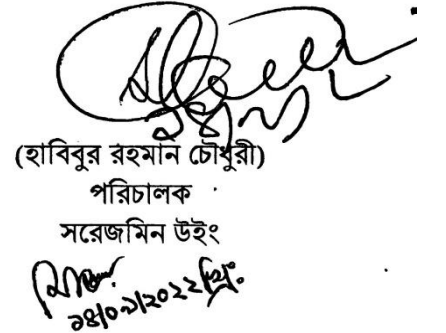 (হাবিবুর রহমান চৌধুরী)
পরিচালক
সরেজমিন উইং
১৪/০৯/২০২২খ্রিঃ